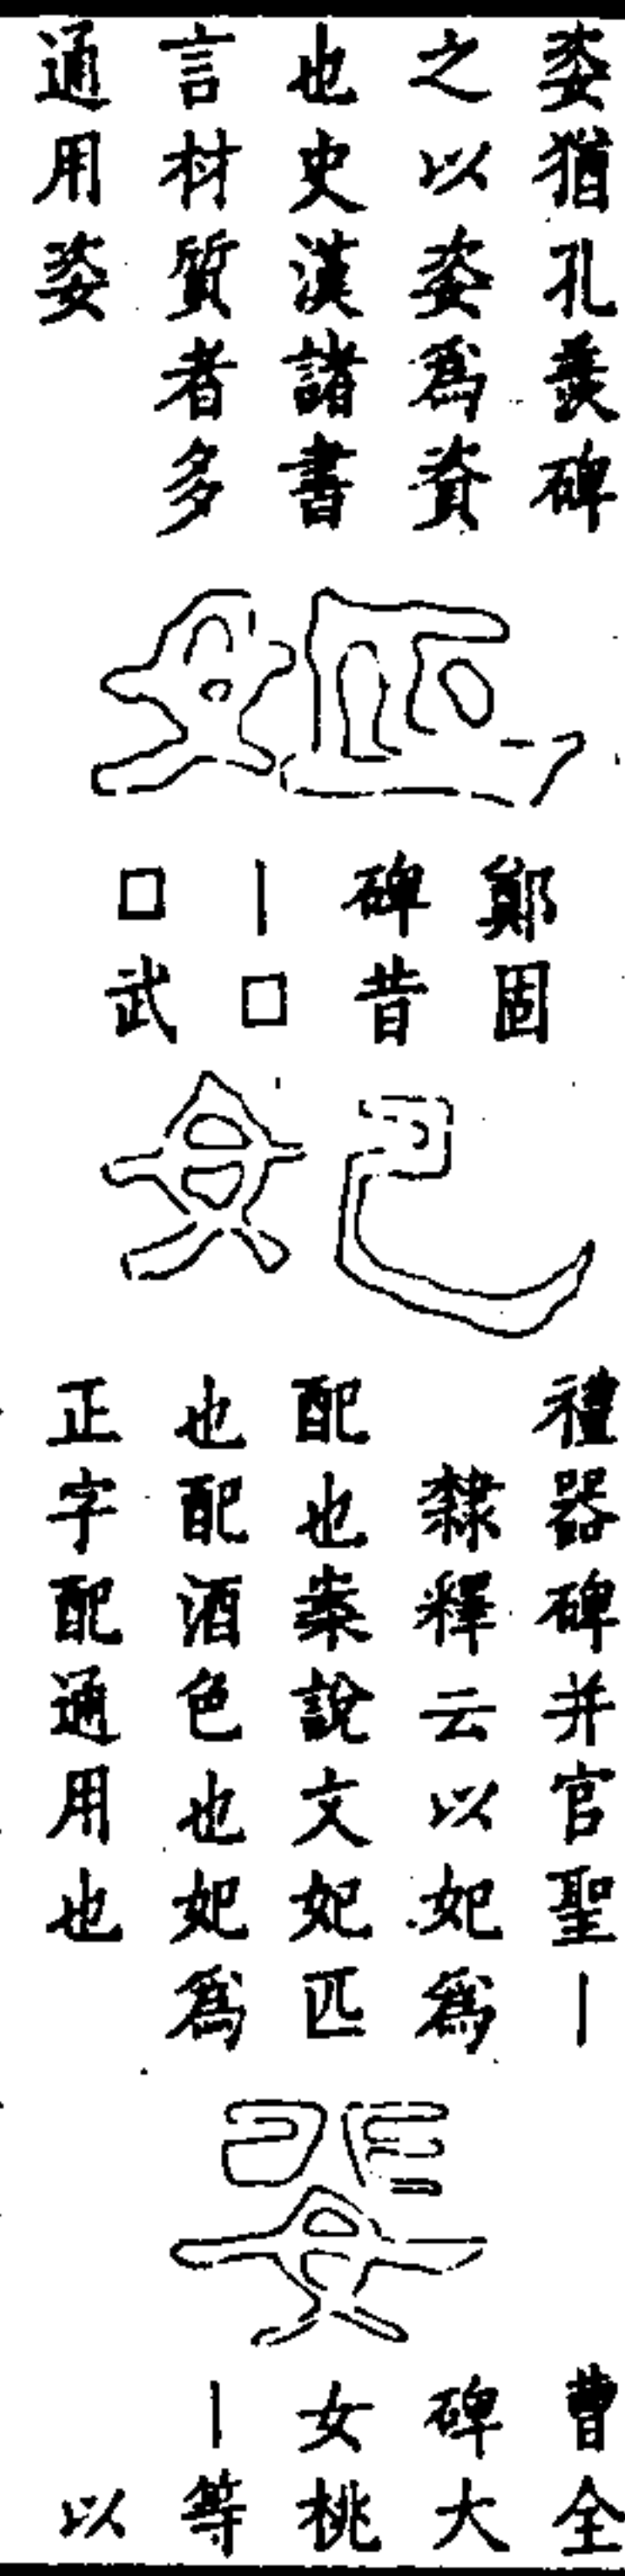 姿猶孔羨碑
之以姿爲資
也史漢諸書
言材質者多
通用姿
姬
鄭固
碑昔
｜□
□武
妃
禮器碑并官聖｜
隸釋云以妃爲
配也案說文妃匹
也配酒色也妃爲
正字配通用也
婓
曹全
碑大
女桃
｜等
以